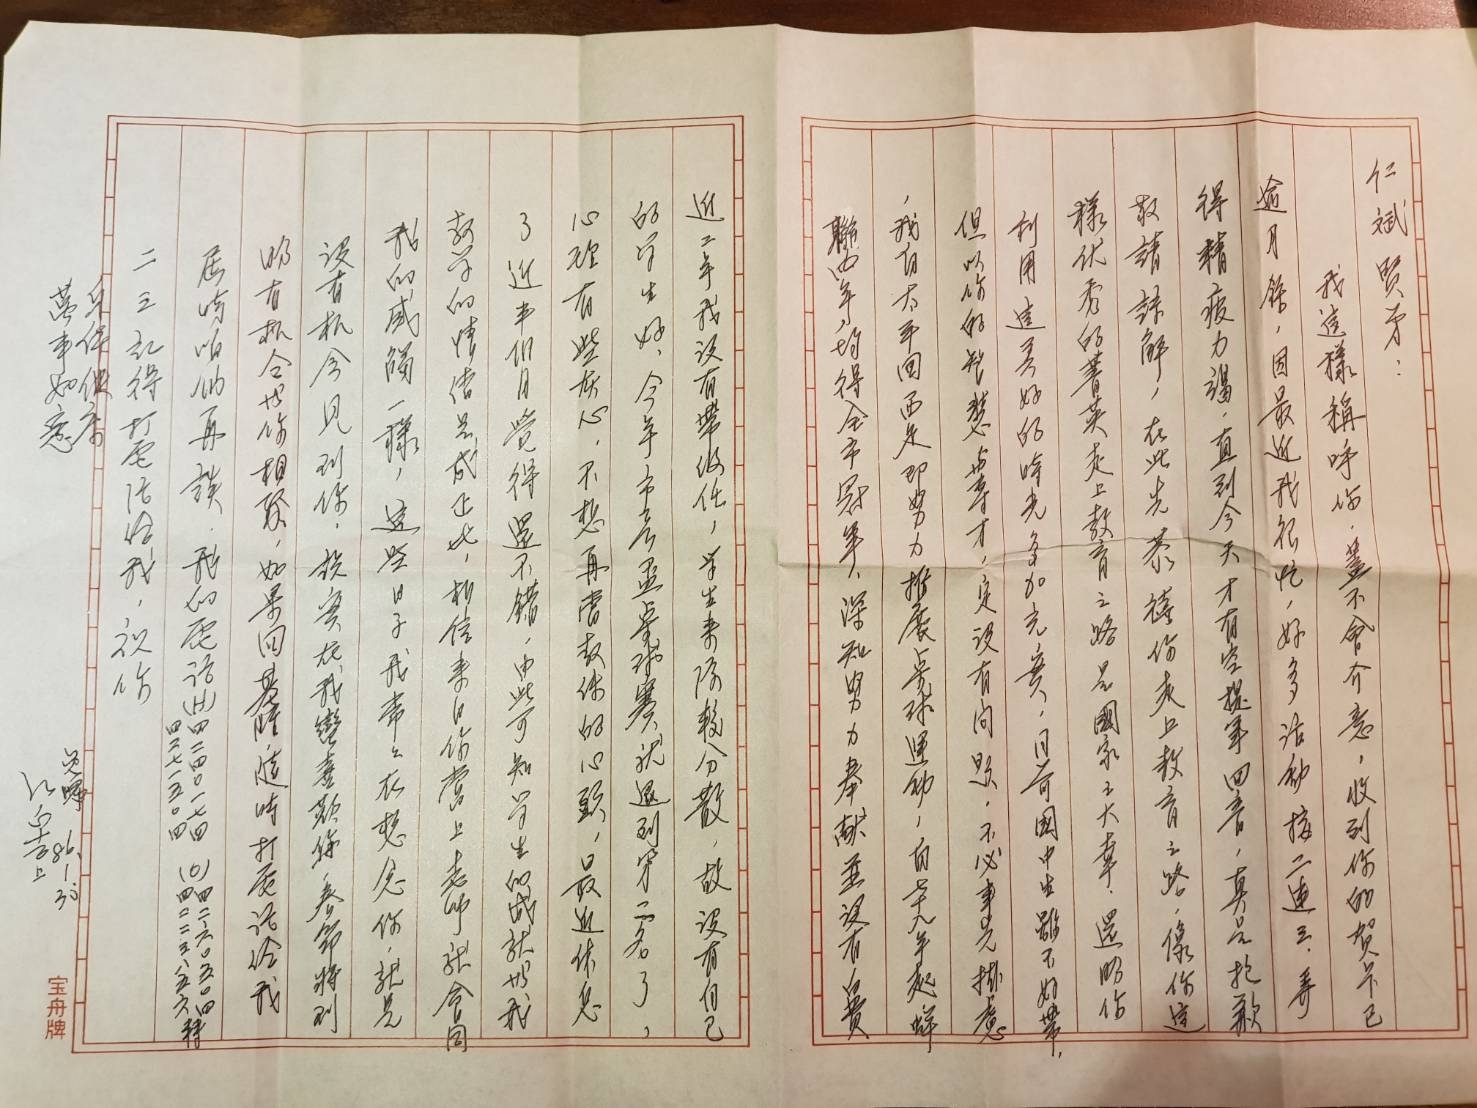 仁斌賢弟：
我這樣稱呼你，蓋不會介意，收到你的賀卡已
逾月餘，因最近我很忙，好多活動接二連三，弄
得精疲力竭，直到今天才有空提筆回音，真是抱歉
敬請諒解，在此先恭禧你走上教育之路，像你這
樣优秀的菁英走上教育之路是國家之大幸，還盼你
利用這美好的時光多加充實，目前國中生雖不好帶，
但以你的智慧與專才，定沒有問題，不必事先掛意
，我自大平回西定即努力推展桌球運動，自七九年起蟬
聯四年均得全市冠軍，深知努力奉献並沒有白費
近二年我沒有帶級任，學生來源較分散，故沒有自己
的学生好，今年市長盃桌球賽就退到第二名了，
心理有些灰心，不想再當教練的心頭，最近休息
了近半個月覺得還不錯，由此可知学生的成就與我
教学的情绪是成正比，相信来日你當上老師就會同
我的感觸一樣，這些日子我常常在想念你，就是
沒有机会見到你，說實在，我蠻喜歡你，春節將到
盼有机会與你相聚，如果回基隆，隨時打電話給我
屆時咱們再談，我的電話(H)四二四〇一七四 (O)四二六〇五〇四轉
四二七一五〇四 四二二三八五六
二三記得打電話給我，祝你
萬事如意
86.1.30
宝舟牌